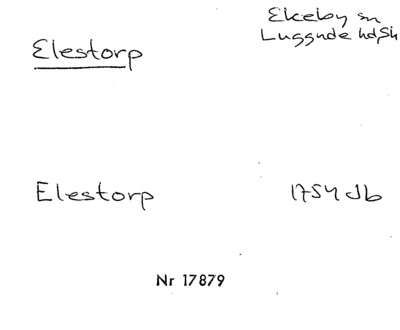 Elestorp
Ekeby sn
Luggude hd, Sk
Elestorp
1754 Jb
Nr 17879